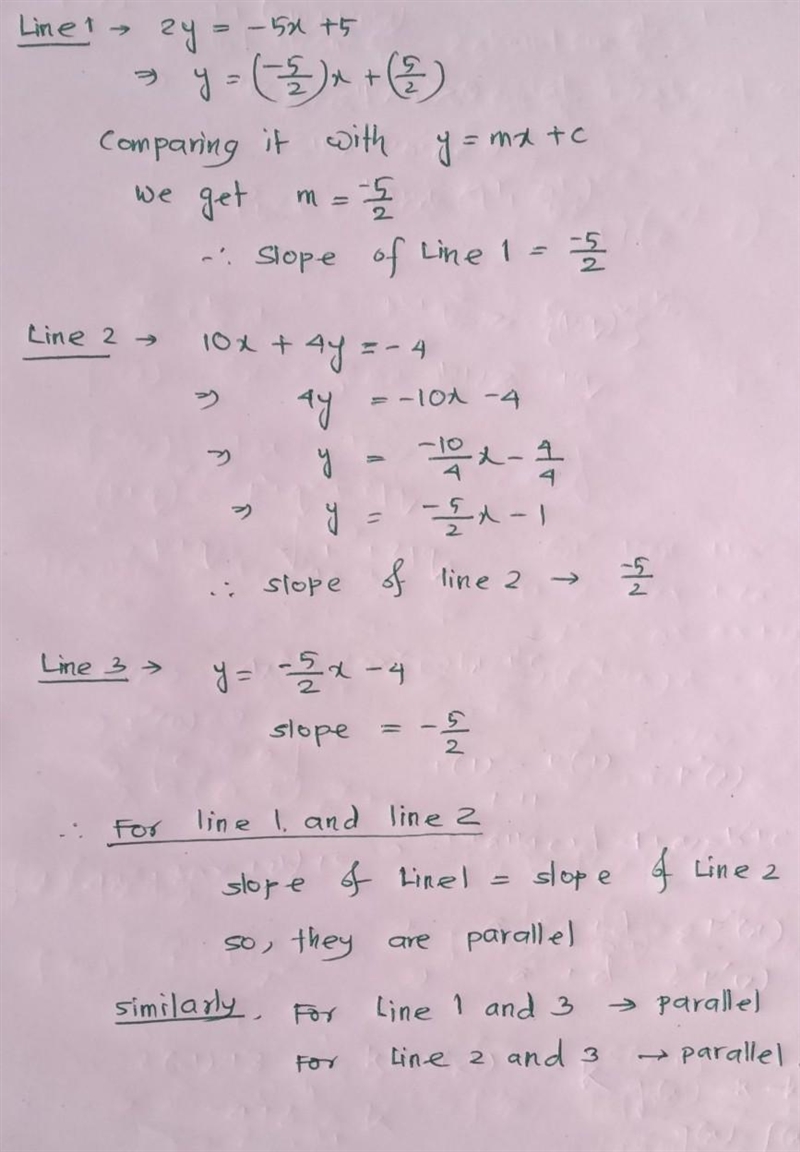 Line 1 → 2y = -5x + 5
⇒ y = (-5/2)x + (5/2)
Comparing it with y = mx + c
we get m = -5/2
∴ slope of Line 1 = -5/2
Line 2 → 10x + 4y = -4
⇒ 4y = -10x - 4
⇒ y = -10/4 x - 4/4
⇒ y = -5/2 x - 1
∴ slope of line 2 → -5/2
Line 3 → y = -5/2 x - 4
slope = -5/2
∴ For line 1. and line 2
slope of Line 1 = slope of Line 2
so, they are parallel
similarly, For Line 1 and 3 → parallel
For Line 2 and 3 → parallel.